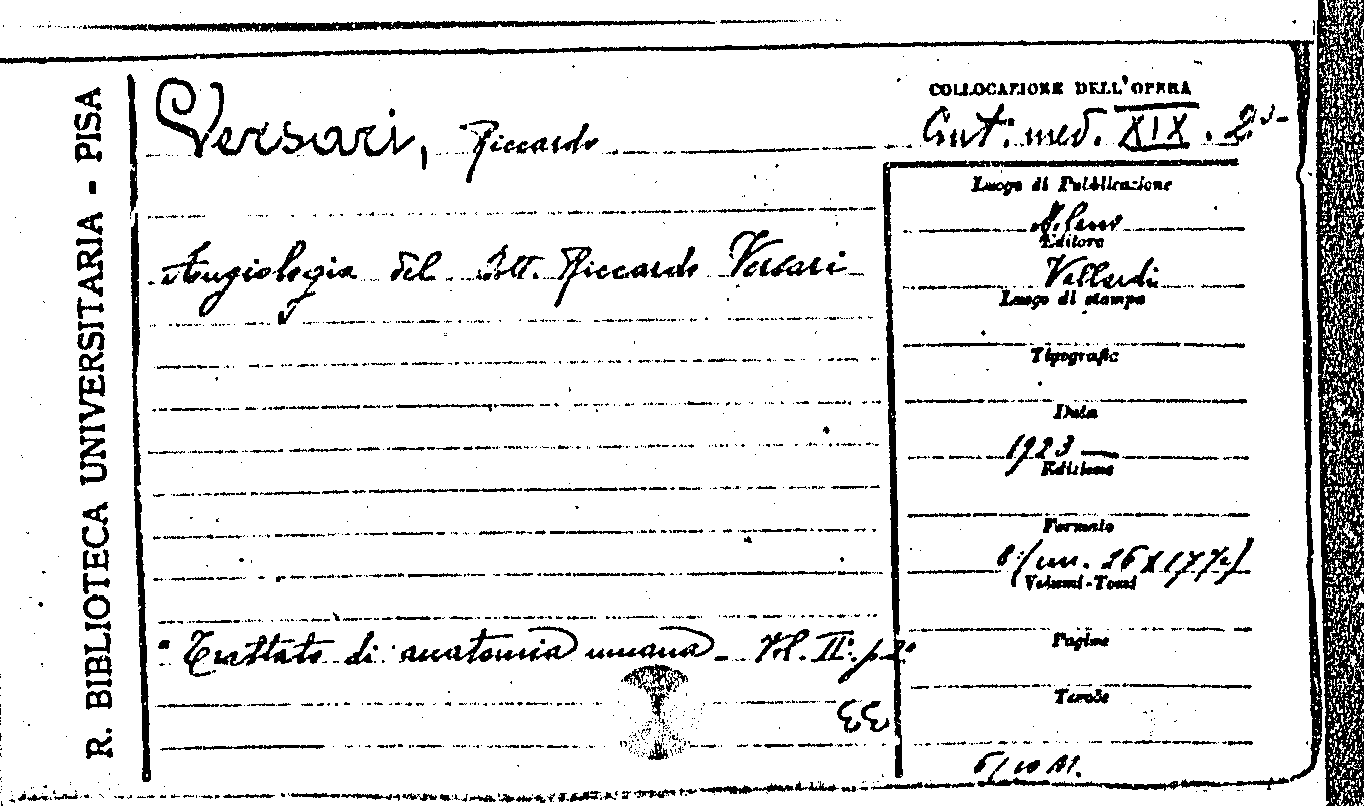 R. BIBLIOTECA UNIVERSITARIA - PISA
COLLOCAZIONE DELL'OPERA
Versari, Riccardo
med. XIX. 2
Luogo di Pubblicazione
Milano
Editore
Angiologia del Dott. Riccardo Versari
Vallardi
Luogo di stampa
Tipografia
Data
1923
Edizione
Formato
8° (cm. 26 X 17 ½)
Volumi-Tomi
Pagine
" Trattato di anatomia umana - Vol. II. p. 2ª
Tavole